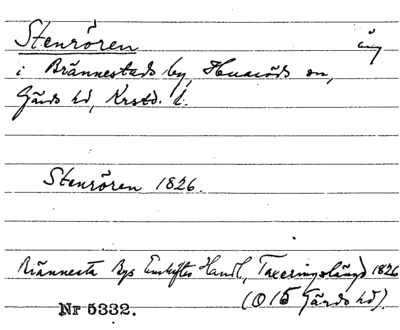 Stenrören äng
i Brännestads by, Huaröds sn,
Gärds hd, Krstd. l.
Stenrören 1826.
Brännesta Bys Enskiftes Handl, Taxeringslängd 1826
(O 15 Gärds hd).
Nr 5332.